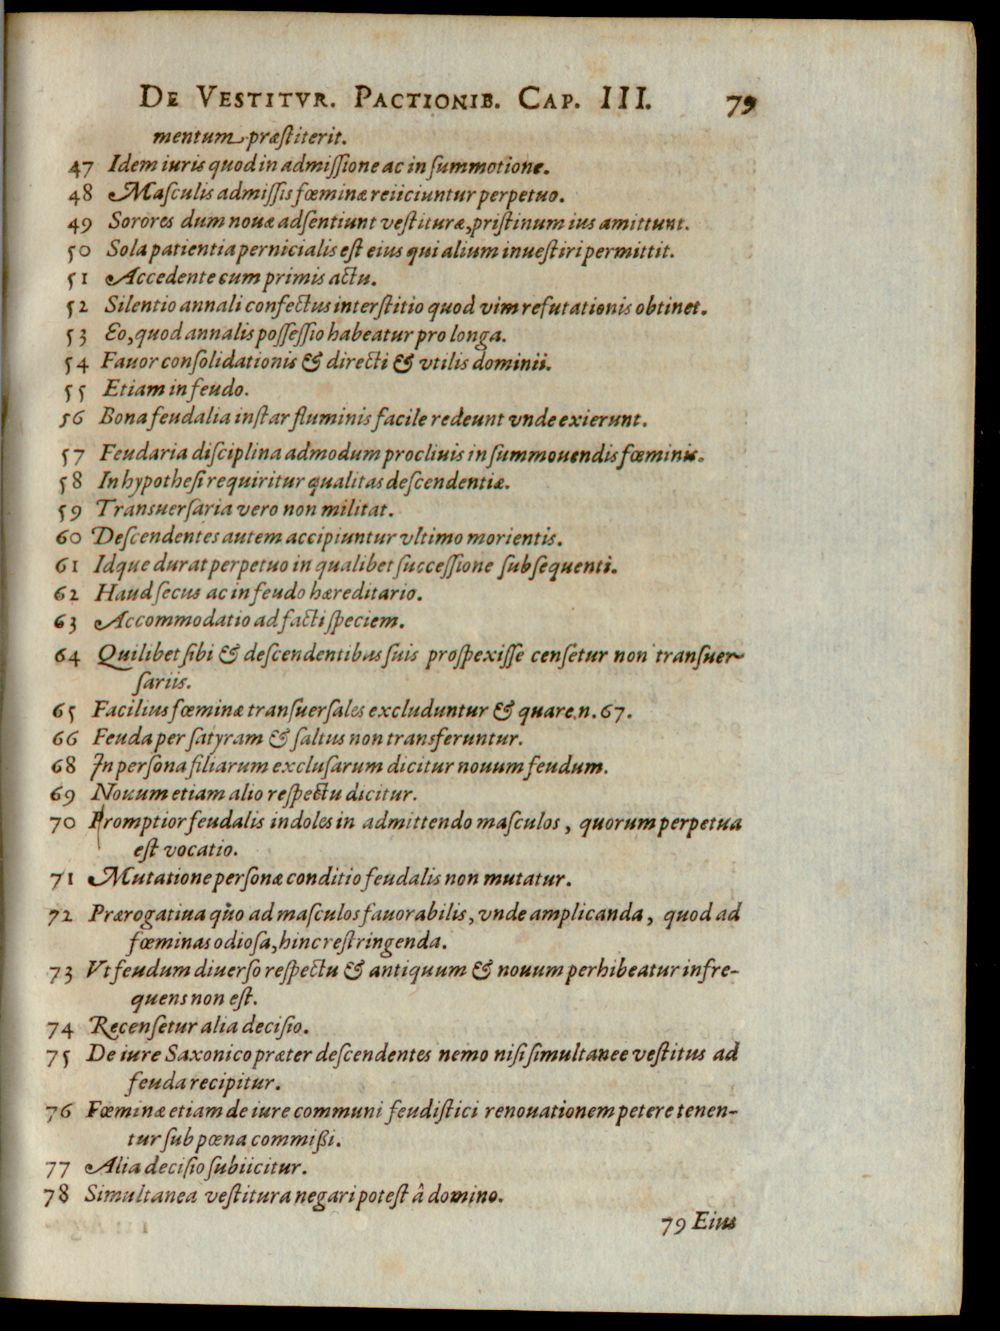 DE VESTITVR. PACTIONIB. CAP. III. 79
mentum præſtiterit.
47 Idem iuris quod in admiſſione ac in ſummotione.
48 Maſculis admiſſis fœminæ reiiciuntur perpetuo.
49 Sorores dum nouæ adſentiunt veſtituræ, priſtinum ius amittunt.
50 Sola patientia pernicialis eſt eius qui alium inueſtiri permittit.
51 Accedente cum primis actu.
52 Silentio annali confectus interſtitio quod vim refutationis obtinet.
53 Eo, quod annalis poſſeſſio habeatur pro longa.
54 Fauor conſolidationis & directi & vtilis dominii.
55 Etiam in feudo.
56 Bona feudalia inſtar fluminis facile redeunt vnde exierunt.
57 Feudaria diſciplina admodum procliuis in ſummouendis fœminis.
58 In hypotheſi requiritur qualitas deſcendentiæ.
59 Transuerſaria vero non militat.
60 Deſcendentes autem accipiuntur vltimo morientis.
61 Idque durat perpetuo in qualibet ſucceſſione ſubſequenti.
62 Haud ſecus ac in feudo hæreditario.
63 Accommodatio ad facti ſpeciem.
64 Quilibet ſibi & deſcendentibus ſuis proſpexiſſe cenſetur non tranſuer-
ſariis.
65 Facilius fœminæ tranſuerſales excluduntur & quare. n. 67.
66 Feuda per ſatyram & ſaltus non transferuntur.
68 In perſona filiarum excluſarum dicitur nouum feudum.
69 Nouum etiam alio reſpectu dicitur.
70 Promptior feudalis indoles in admittendo maſculos, quorum perpetua
eſt vocatio.
71 Mutatione perſonæ conditio feudalis non mutatur.
72 Prærogatiua quo ad maſculos fauorabilis, vnde amplicanda, quod ad
fœminas odioſa, hinc reſtringenda.
73 Vt feudum diuerſo reſpectu & antiquum & nouum perhibeatur infre-
quens non eſt.
74 Recenſetur alia deciſio.
75 De iure Saxonico præter deſcendentes nemo niſi ſimultanee veſtitus ad
feuda recipitur.
76 Fœminæ etiam de iure communi feudiſtici renouationem petere tenen-
tur ſub pœna commißi.
77 Alia deciſio ſubiicitur.
78 Simultanea veſtitura negari poteſt â domino.
79 Eius